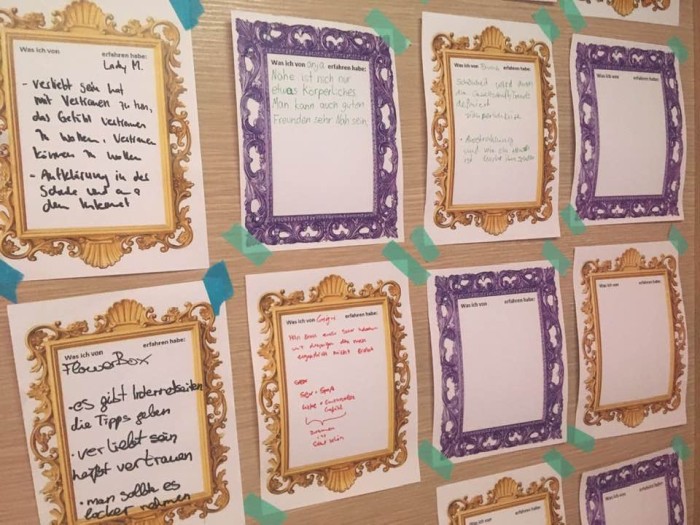 Was ich von erfahren habe:
Lady M.
- verliebt sein hat
mit Vertrauen zu tun,
das Gefühl vertrauen
zu wollen, Vertrauen
können zu wollen
- Aufklärung in der
Schule und
dem Internet
Was ich von anja erfahren habe:
Nähe ist nich nur
etwas Körperliches.
Man kann auch guten
Freunden sehr Nah sein.
Was ich von erfahren habe:
Schönheit wird durch
die Gesellschaft
definiert
• Ausstrahlung
Was ich von erfahren habe:
Was ich von erfahren habe:
FlowerBox
• es gibt Internetseiten
die Tipps geben
• verliebt sein
heißt vertrauen
• man sollte es
locker nehmen
Was ich von erfahren habe:
Man kann auch Sex haben
mit
eigentlich nicht
Sex = Spaß
Liebe =
Gefühl
Zusammen
Was ich von erfahren habe:
Was ich von erfahren habe:
Was ich von erfahren habe:
Was ich von erfahren habe: